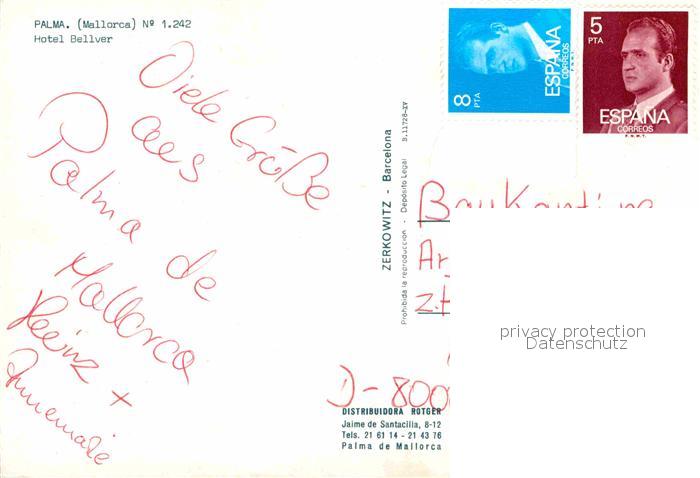 PALMA. (Mallorca) Nº 1.242
Hotel Bellver
Viele Grüße
aus
Palma de
Mallorca
Heinz +
Annemarie
ZERKOWITZ - Barcelona
Prohibida la reproducción - Depósito Legal B. 11728-XV
8 PTA
ESPAÑA
CORREOS
5 PTA
ESPAÑA
CORREOS
F.N.M.T.
D-800
privacy protection
Datenschutz
DISTRIBUIDORA ROTGER
Jaime de Santacilia, 8-12
Tels. 21 61 14 - 21 43 76
Palma de Mallorca